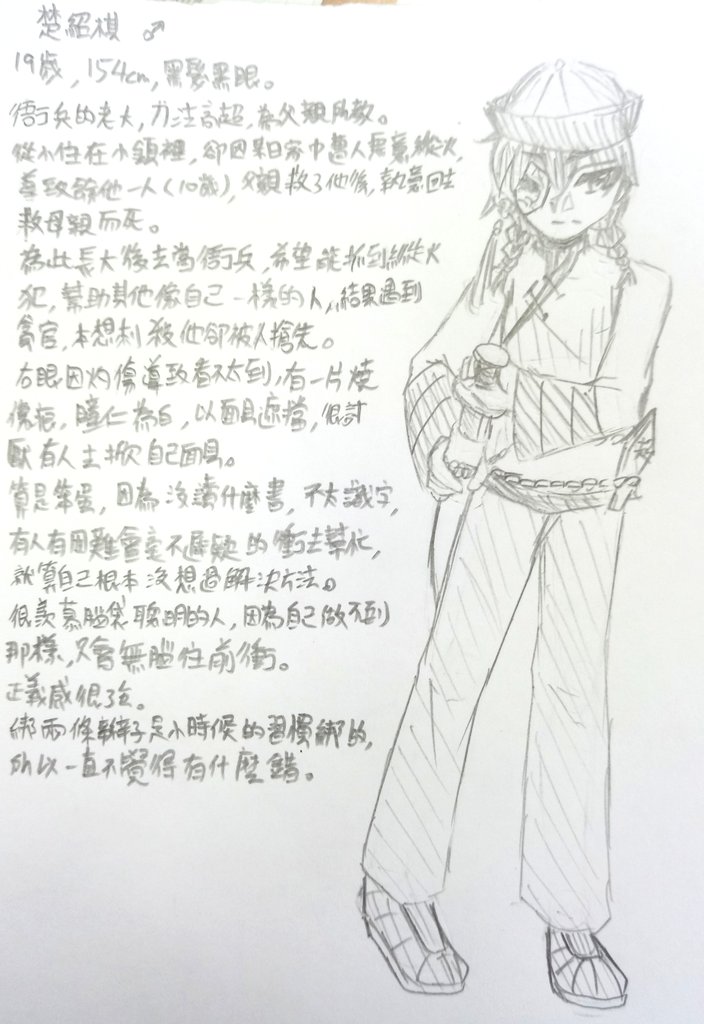 楚紹棋 ♂
19歲,154cm,黑髮黑眼。
衙兵的老大,刀法高超,為父親所教。
從小住在小鎮裡,卻因某日家中遭人惡意縱火,
導致餘他一人(10歲),父親救了他後,執意回去
救母親而死。
為此長大後去當衙兵,希望能抓到縱火
犯,幫助其他像自己一樣的人,結果遇到
貪官,本想刺殺他卻被人搶先。
右眼因灼傷導致看不太到,有一片燒
傷疤,瞳仁為白,以面具遮擋,很討
厭有人去掀自己面具。
算是笨蛋,因為沒讀什麼書,不太識字,
有人有困難會毫不遲疑的衝去幫忙,
就算自己根本沒想過解決方法。
很羨慕腦袋聰明的人,因為自己做不到
那樣,只會無腦往前衝。
正義感很強。
綁兩條辮子是小時候的習慣綁的,
所以一直不覺得有什麼錯。